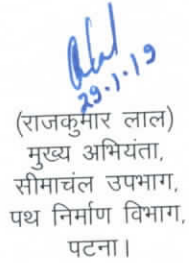 29.1.19
(राजकुमार लाल)
मुख्य अभियंता,
सीमाचंल उपभाग,
पथ निर्माण विभाग,
पटना।